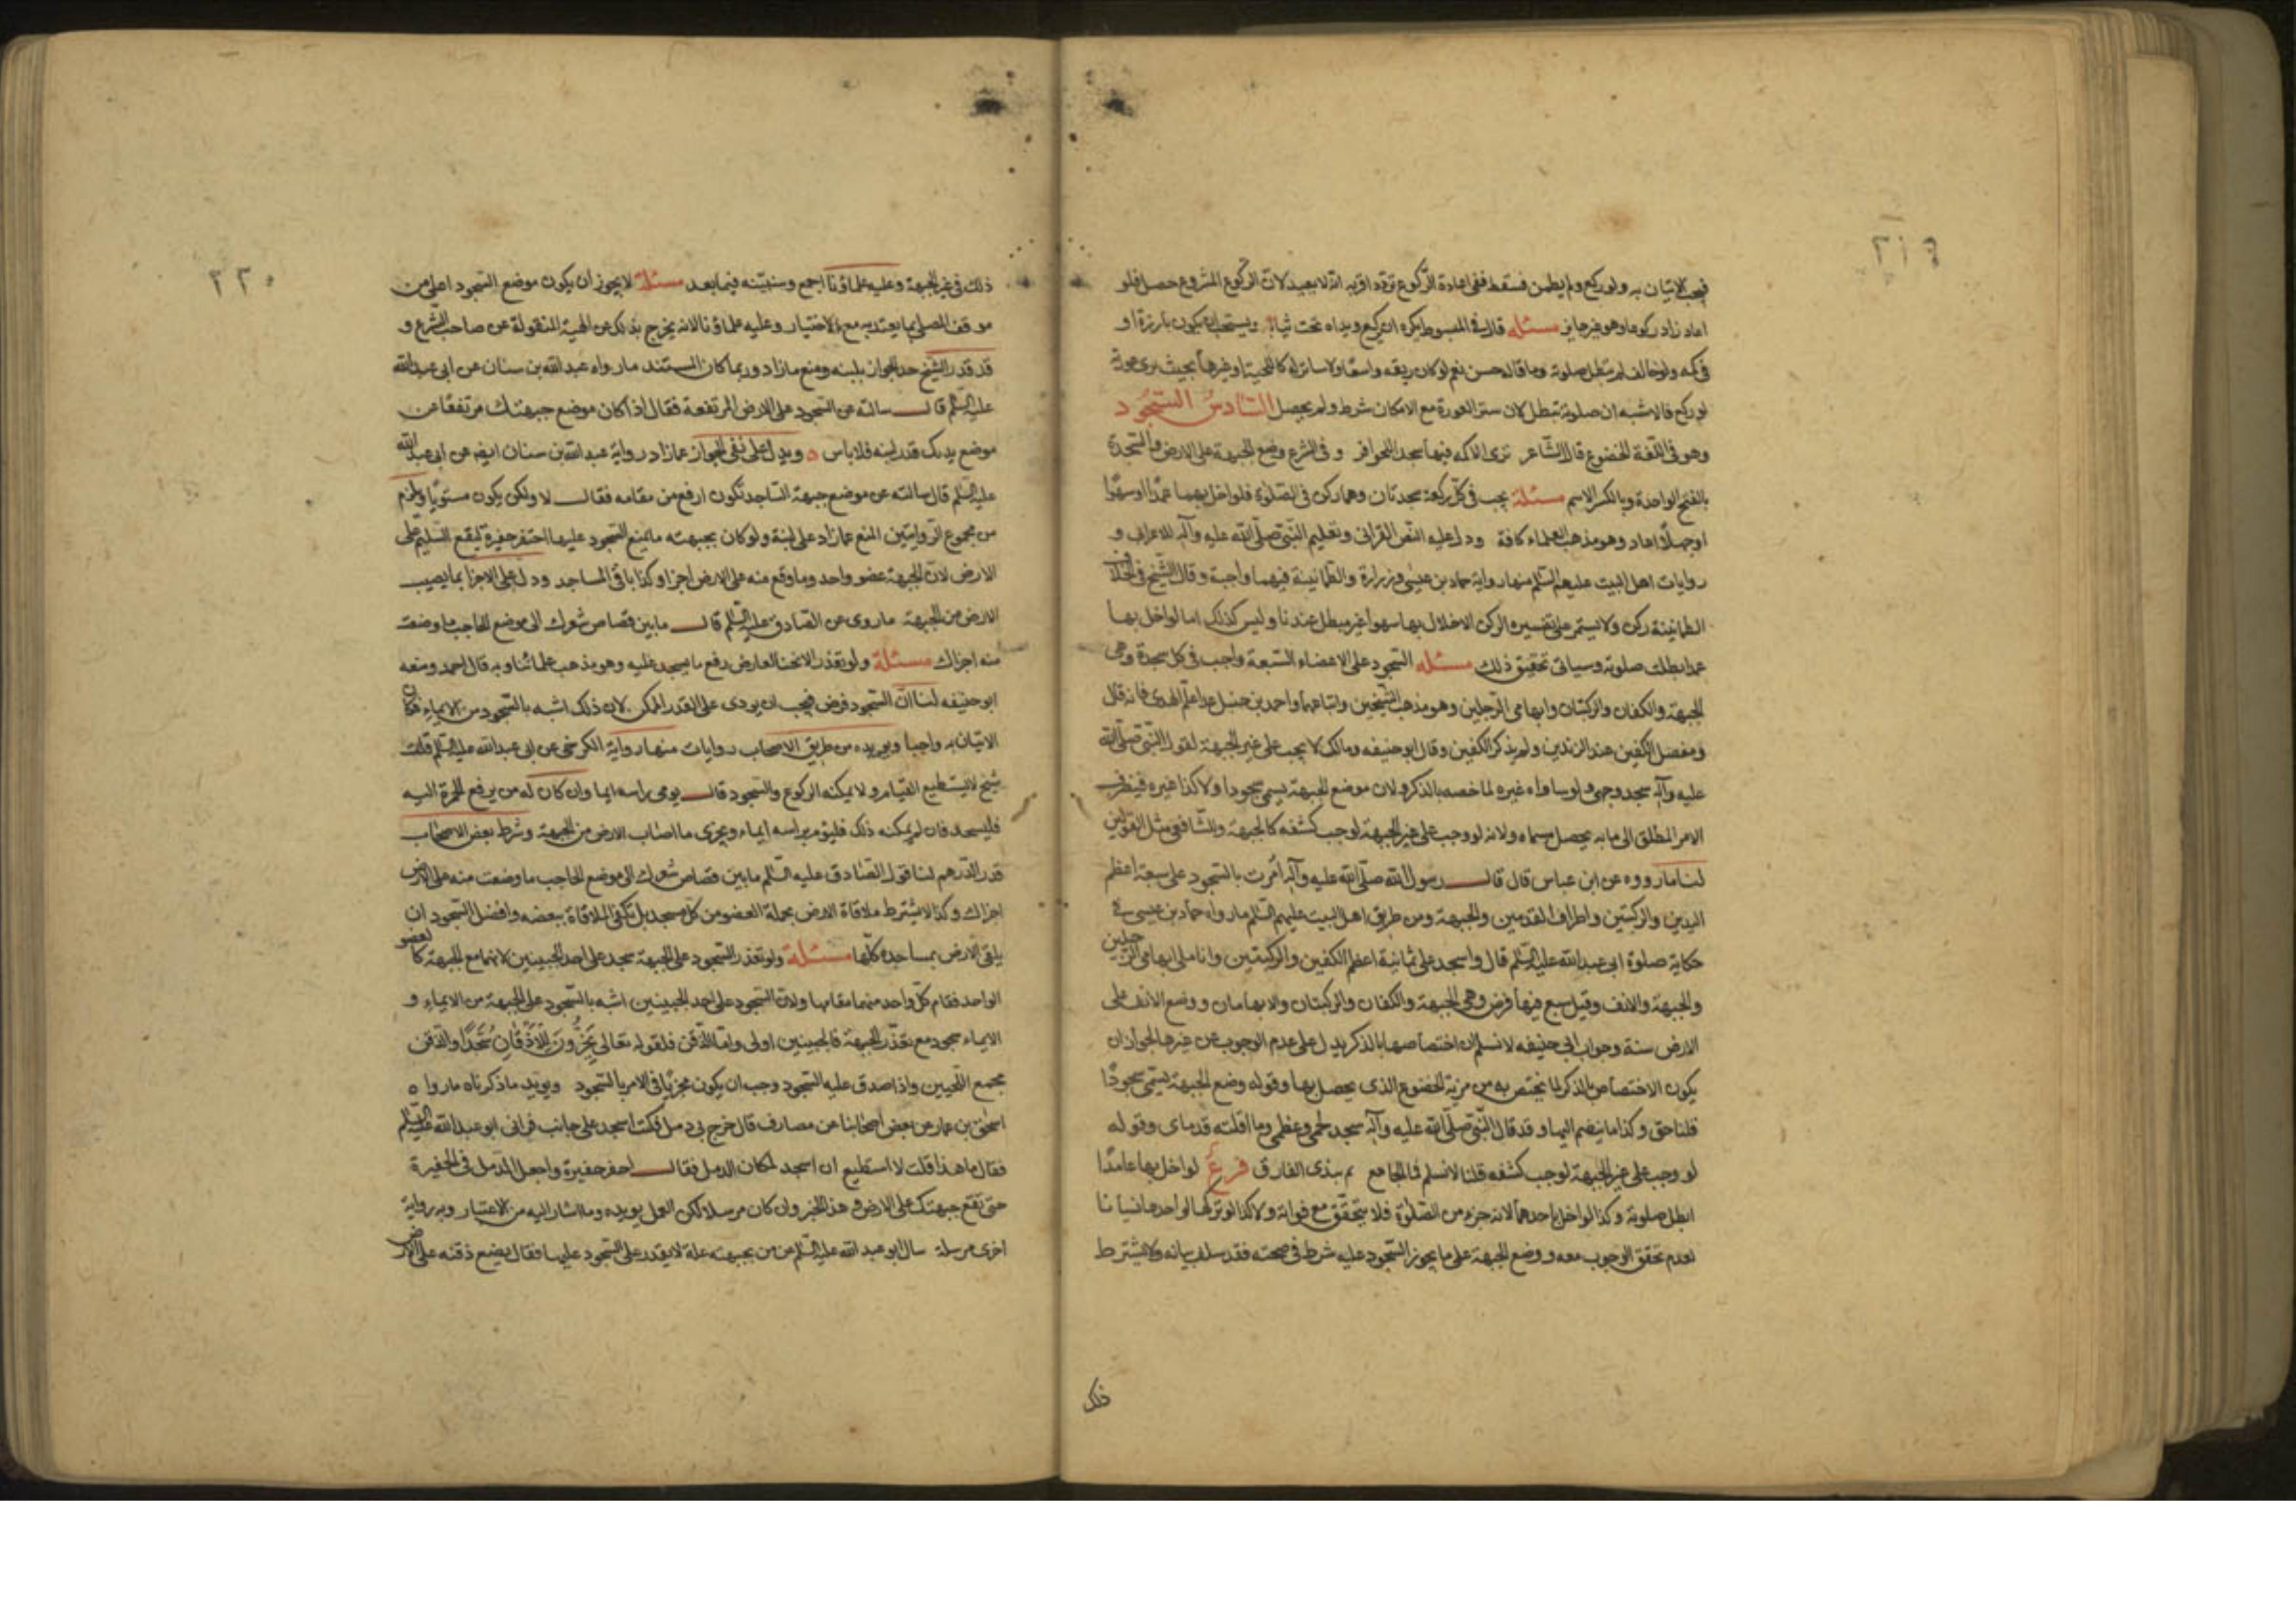 ٢١٩
فيجب الاتيان به ولو ركع ولم يطمئن فسقط ففي اعادة الركوع تردد اقربه انه لا يعيد لان الركوع المشروع حصل فلو
اعاد زاد ركوعا وهو غير جايز مسئله قال في المبسوط يكره ان يركع ويداه تحت ثيابه ويستحب ان يكون بارزة او
في كمه ولو خالف لم تبطل صلوته وما قاله حسن نعم لو كان ريقه واسعا ولا ساتر له كاللحية او غيرها بحيث يرى عورته
لو ركع فالاشبه ان صلوته تبطل لان ستر العورة مع الامكان شرط ولم يحصل السادس السجود
وهو في اللغة الخضوع قال الشاعر ترى الاكم فيها سجد للحوافر وفي الشرع وضع الجبهة على الارض والسجدة
بالفتح الواحدة وبالكسر الاسم مسئلة يجب في كل ركعة سجدتان وهما ركن في الصلوة فلو اخل بهما عمدا او سهوا
او جهلا اعاد وهو مذهب العلماء كافة ودل عليه النص القراني وتعليم النبي صلى الله عليه وآله للاعرابي و
روايات اهل البيت عليهم السلم منها رواية حماد بن عيسى وزرارة والطمانينة فيهما واجبة وقال الشيخ في الخلاف
الطمانينة ركن ولا يستمر على تفسيره الركن الاخلال بها سهوا غير مبطل عندنا وليس كذلك اما لو اخل بها
عمدا بطلت صلوته وسياتي تحقيق ذلك مسئله السجود على الاعضاء السبعة واجب في كل سجدة وهي
الجبهة والكفان والركبتان وابهامي الرجلين وهو مذهب الشيخين واتباعهما واحمد بن حنبل عدا علم الهدى فانه قال
ومفصل الكفين عند الزندين ولم يذكر الكفين وقال ابو حنيفه ومالك لا يجب على غير الجبهة لقول النبي صلى الله
عليه وآله سجد وجهي ولو ساواه غيره لما خصه بالذكر ولان موضع الجبهة يسمى سجودا ولا كذا غيره فينصرف
الامر المطلق الى ما به يحصل مسماه ولانه لو وجب على غير الجبهة لوجب كشفه كالجبهة والشافعي مثل القولين
لنا ما رووه عن ابن عباس قال قال رسول الله صلى الله عليه وآله امرت بالسجود على سبعة اعظم
اليدين والركبتين واطراف القدمين والجبهة ومن طريق اهل البيت عليهم السلم ما رواه حماد بن عيسى في
حكاية صلوة ابي عبد الله عليه السلم قال واسجد على ثمانية اعظم الكفين والركبتين وانامل ابهامي الرجلين
والجبهة والانف وقيل سبع فيها فرض وهي الجبهة والكفان والركبتان والابهامان ووضع الانف على
الارض سنة وجواب ابي حنيفه لا نسلم ان اختصاصها بالذكر يدل على عدم الوجوب عن غيرها لجواز ان
يكون الاختصاص بالذكر لما يختص به من مزية الخضوع الذي يحصل بها وقوله وضع الجبهة يسمى سجودا
قلنا حق وكذا ما ينضم اليها وقد قال النبي صلى الله عليه وآله سجد لحمي وعظمي وما اقلته قدماي وقوله
لو وجب على غير الجبهة لوجب كشفه قلنا لا نسلم فالجامع ثم بندى الفارق فرع لو اخل بها عامدا
ابطل صلوته وكذا لو اخل باحدهما لانه جزء من الصلوة فلا يتحقق مع فواته ولا كذا لو ترك الواحد ها نسيانا
لعدم تحقق الوجوب معه ووضع الجبهة على ما يجوز السجود عليه شرط في صحته فقد سلف بيانه ولا يشترط
ذلك
٢٢٠
ذلك في غير الجبهة وعليه علماؤنا اجمع وسنبينه فيما بعد مسئلة لا يجوز ان يكون موضع السجود اعلى من
موقف المصلي بما يعتد به مع الاختيار وعليه علماؤنا لانه يخرج بذلك عن الهيئة المنقولة عن صاحب الشرع و
قد قدر الشيخ حد الجواز بلبنه ومنع ما زاد وربما كان المستند ما رواه عبد الله بن سنان عن ابي عبد الله
عليه السلم قال سالته عن السجود على الارض المرتفعة فقال اذا كان موضع جبهتك مرتفعا عن
موضع يديك قدر لبنه فلا باس ه ويدل على نفي الجواز عما زاد رواية عبد الله بن سنان ايضا عن ابي عبد الله
عليه السلم قال سالته عن موضع جبهة الساجد تكون ارفع من مقامه فقال لا ولكن يكون مستويا ولزم
من مجموع الروايتين المنع عما زاد على لبنة ولو كان بجبهته ما يمنع السجود عليها احتفر حفيرة ليقع السليم على
الارض لان الجبهة عضو واحد وما وقع منه على الارض اجزا وكذا باقي المساجد ودل على الاجزا بما يصيب
الارض من الجبهة ما روى عن الصادق عليه السلم قال ما بين قصاص شعرك الى موضع الحاجب ما وضعت
منه اجزاك مسئلة ولو تعذر الانحنا لعارض رفع ما يسجد عليه وهو مذهب علمائنا وبه قال احمد ومنعه
ابو حنيفه لنا ان السجود فرض فيجب ان يودى على القدر الممكن لان ذلك اشبه بالسجود من الايماء فكان
الاتيان به واجبا ويويده من طريق الاصحاب روايات منها رواية الكرخي عن ابي عبد الله عليه السلم قلت
شيخ لا يستطيع القيام ولا يمكنه الركوع والسجود قال يومى براسه ايما وان كان له من يرفع الخمرة اليه
فليسجد فان لم يمكنه ذلك فليوم براسه ايماء ويجزى ما اصاب الارض من الجبهة وشرط بعض الاصحاب
قدر الدرهم لنا قول الصادق عليه السلم ما بين قصاص شعرك الى موضع الحاجب ما وضعت منه على الارض
اجزاك وكذا لا يشترط ملاقاة الارض بجملة العضو من كل مسجد بل تكفي الملاقاة ببعضه وافضل السجود ان
يلقى الارض بمساجده كلها مسئلة ولو تعذر السجود على الجبهة سجد على احد الجبينين لانهما مع الجبهة كالعضو
الواحد فقام كل واحد منهما مقامها ولان السجود على احد الجبينين اشبه بالسجود على الجبهة من الايماء و
الايماء سجود مع تعذر الجبهة فالجبينين اولى واما الذقن فلقوله تعالى يَخِرُّونَ لِلْأَذْقَانِ سُجَّدًا والذقن
مجمع اللحيين واذا صدق عليه السجود وجب ان يكون مجزيا في الامر بالسجود ويويد ما ذكرناه ما رواه
اسحق بن عمار عن بعض اصحابنا عن مصارف قال خرج بي دمل فكنت اسجد على جانب فراني ابو عبد الله عليه السلم
فقال ما هذا قلت لا استطيع ان اسجد لمكان الدمل فقال احفر حفيرة واجعل الدمل في الحفيرة
حتى تقع جبهتك على الارض وهذا الخبر وان كان مرسلا لكن العمل يويده وما اشار اليه من الاعتبار وبه رواية
اخرى مرسلة سال ابو عبد الله عليه السلم عن من بجبهته علة لا يقدر على السجود عليها فقال يضع ذقنه على الارض